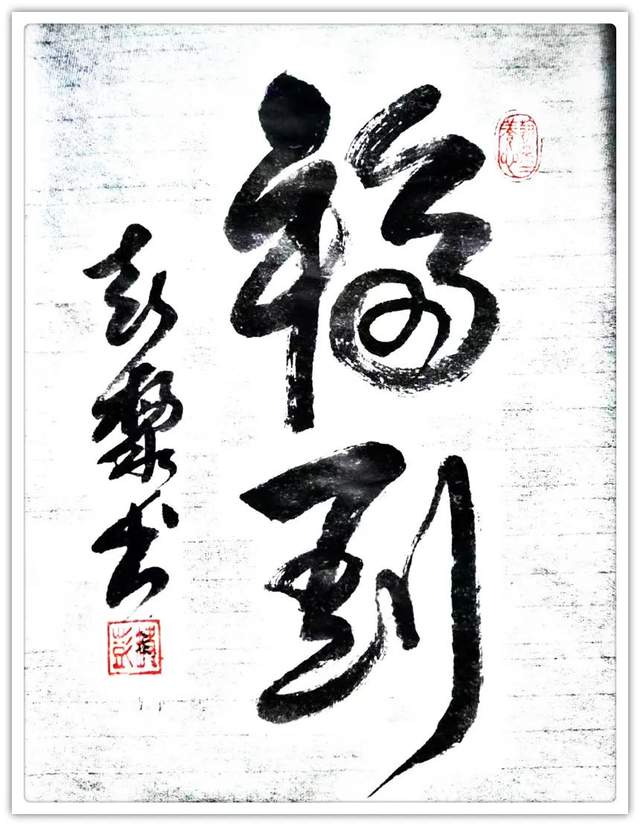 福到
彭黎书